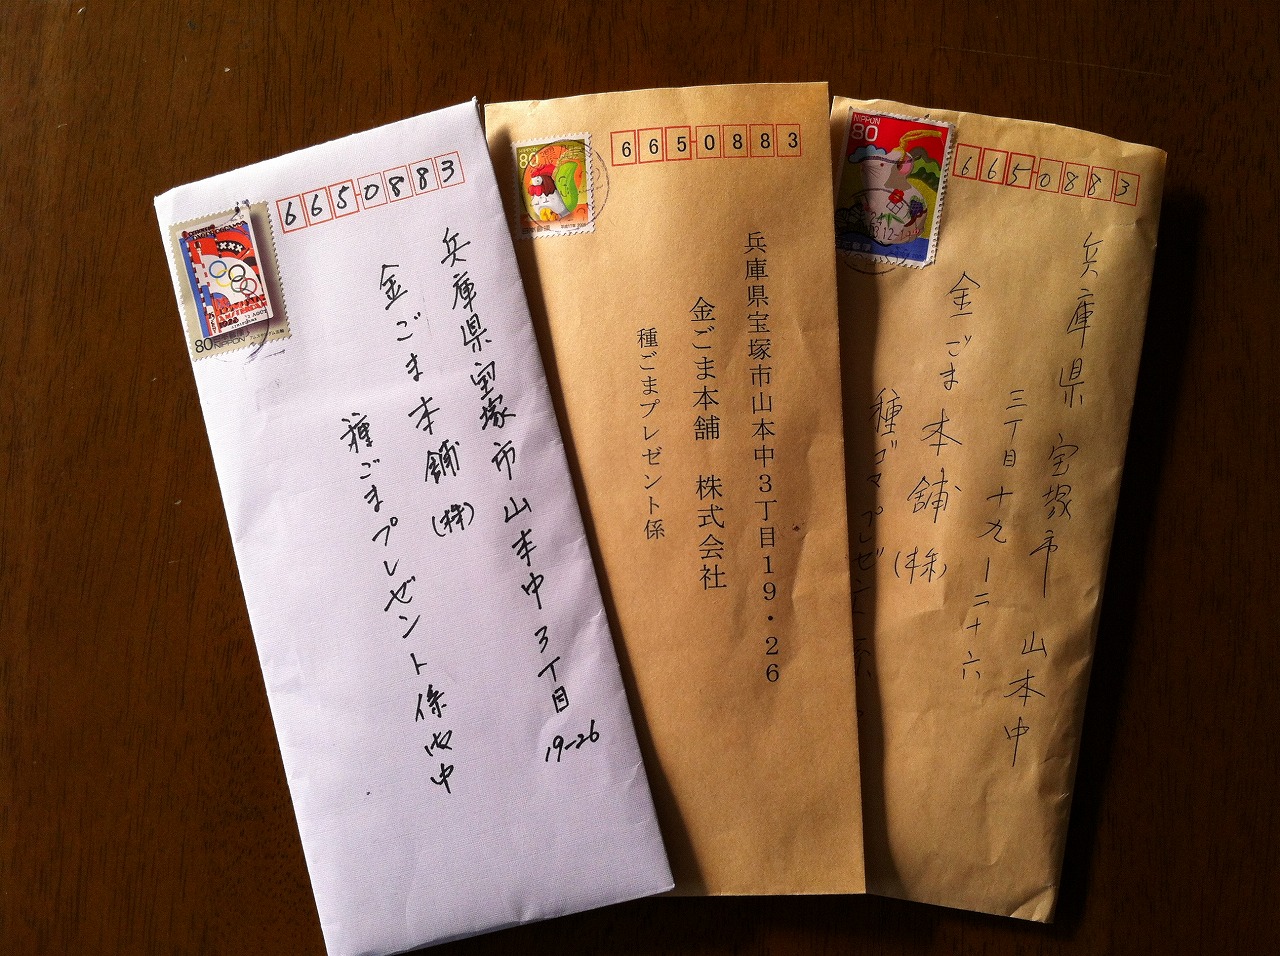 6650883
兵庫県宝塚市山本中3丁目
19-26
金ごま本舗(株)
種ごまプレゼント係御中
80 NIPPON
1928
6650883
兵庫県宝塚市山本中3丁目19・26
金ごま本舗 株式会社
種ごまプレゼント係
NIPPON
80
6650883
兵庫県宝塚市山本中
三丁目十九ー二十六
金ごま本舗(株)
種ゴマプレゼント係
NIPPON
80